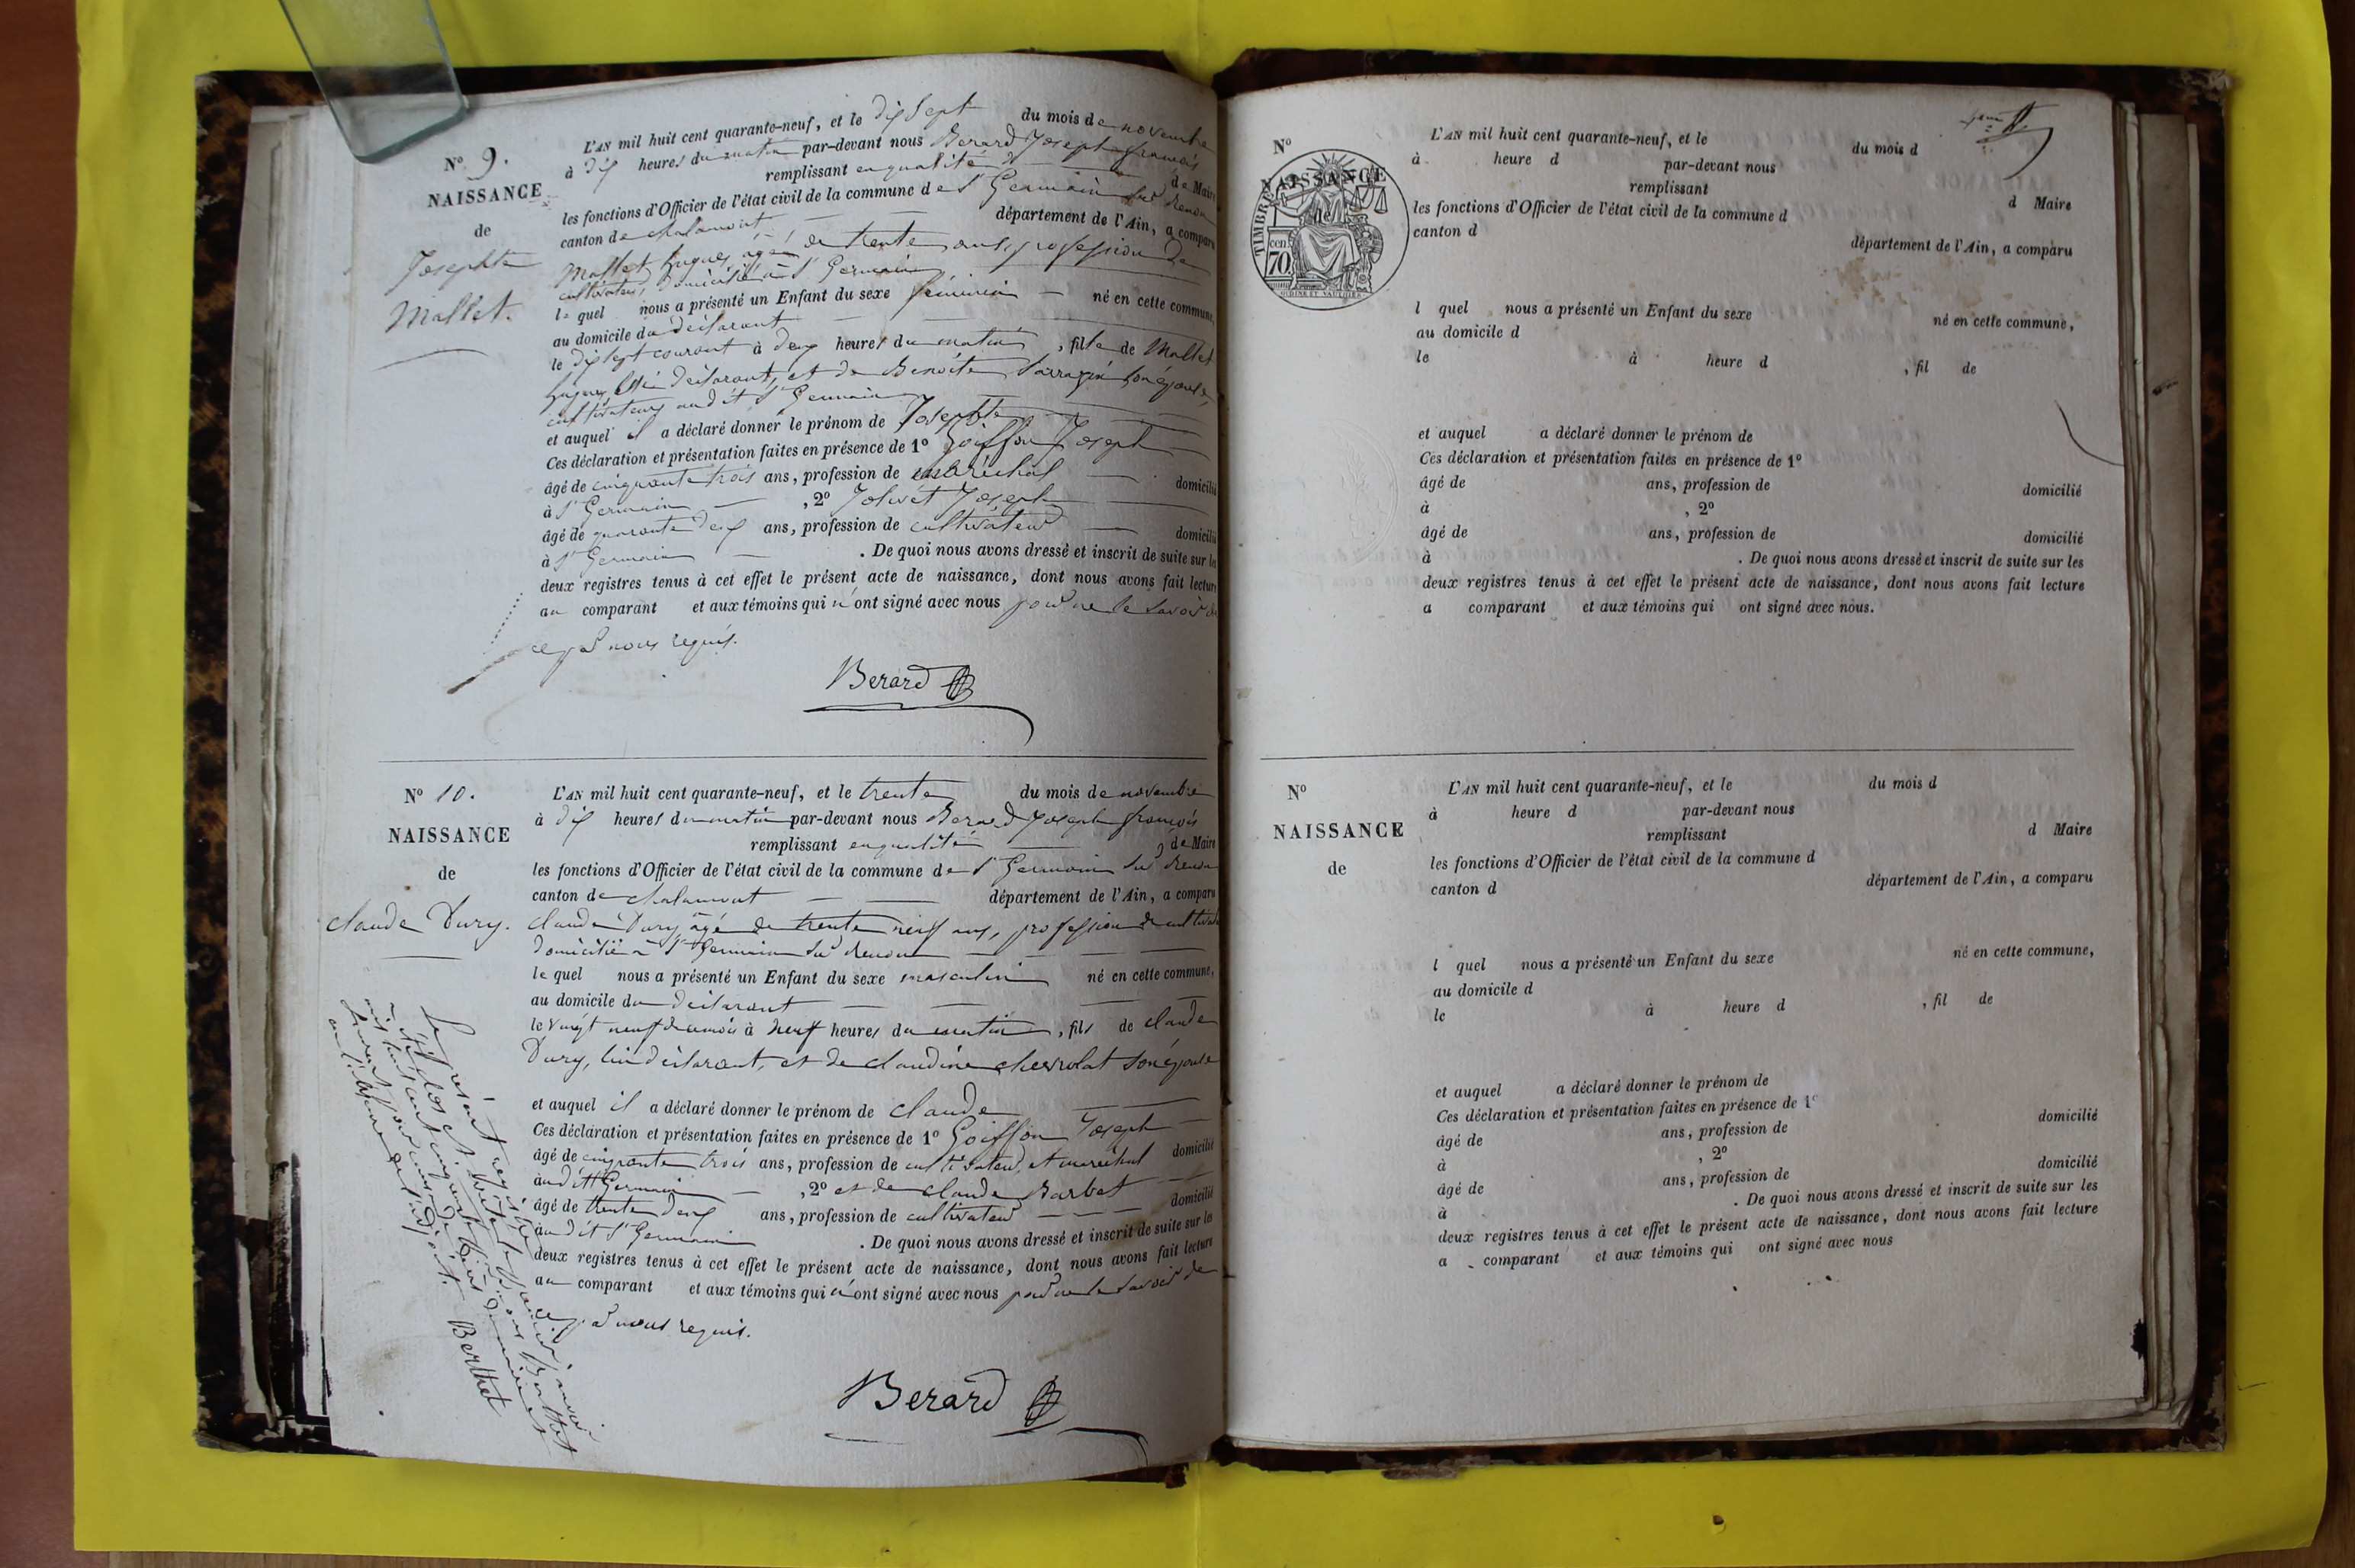 N° 9.
NAISSANCE
de
Josephte
Mallet.
L'AN mil huit cent quarante-neuf, et le dix sept du mois de novembre
à dix heures du matin par-devant nous Berard Joseph françois
remplissant en qualité de Maire
les fonctions d'Officier de l'état civil de la commune de St Germain sur Renon
canton de chalamont département de l'Ain, a comparu
Mallet hugues, âgé de trente ans, profession de
cultivateur, domicilié à St Germain
lequel nous a présenté un Enfant du sexe feminin né en cette commune,
au domicile du déclarant
le dix sept courant à deux heures du matin, fille de Mallet
hugues, déclarant, et de Benoite son épouse,
cultivateurs audit St Germain
et auquel il a déclaré donner le prénom de Josephte
Ces déclaration et présentation faites en présence de 1° Goiffon Joseph
âgé de cinquante trois ans, profession de maréchal domicilié
à St Germain, 2° Jolivet Joseph
âgé de quarante deux ans, profession de cultivateur domicilié
à St Germain. De quoi nous avons dressé et inscrit de suite sur les
deux registres tenus à cet effet le présent acte de naissance, dont nous avons fait lecture
au comparant et aux témoins qui n'ont signé avec nous pour ne le savoir de
ce par nous requis.
Berard
N° 10.
NAISSANCE
de
claude Dury.
L'AN mil huit cent quarante-neuf, et le trente du mois de novembre
à dix heures du matin par-devant nous Berard Joseph françois
remplissant en qualité de Maire
les fonctions d'Officier de l'état civil de la commune de St Germain sur Renon
canton de chalamont département de l'Ain, a comparu
claude Dury âgé de trente neuf ans, profession de cultivateur
domicilié à St Germain sur Renon
lequel nous a présenté un Enfant du sexe masculin né en cette commune,
au domicile du déclarant
le vingt neuf du mois à neuf heures du matin, fils de claude
Dury, lui déclarant, et de claudine chevrolat son épouse
et auquel il a déclaré donner le prénom de claude
Ces déclaration et présentation faites en présence de 1° Goiffon Joseph
âgé de cinquante trois ans, profession de cultivateur et maréchal domicilié
audit St Germain, 2° et de claude Barbet
âgé de trente deux ans, profession de cultivateur domicilié
audit St Germain. De quoi nous avons dressé et inscrit de suite sur les
deux registres tenus à cet effet le présent acte de naissance, dont nous avons fait lecture
au comparant et aux témoins qui n'ont signé avec nous pour ne le savoir de
ce par nous requis.
Berard
Le présent registre
a été clos et
mil huit cent cinquante
Berthet
N°
NAISSANCE
de
TIMBRE
cen. 70
L'AN mil huit cent quarante-neuf, et le du mois d
à heure d par-devant nous
remplissant d Maire
les fonctions d'Officier de l'état civil de la commune d
canton d département de l'Ain, a comparu
l quel nous a présenté un Enfant du sexe né en cette commune,
au domicile d
le à heure d , fil de
et auquel a déclaré donner le prénom de
Ces déclaration et présentation faites en présence de 1°
âgé de ans, profession de domicilié
à , 2°
âgé de ans, profession de domicilié
à . De quoi nous avons dressé et inscrit de suite sur les
deux registres tenus à cet effet le présent acte de naissance, dont nous avons fait lecture
a comparant et aux témoins qui ont signé avec nous.
N°
NAISSANCE
de
L'AN mil huit cent quarante-neuf, et le du mois d
à heure d par-devant nous
remplissant d Maire
les fonctions d'Officier de l'état civil de la commune d
canton d département de l'Ain, a comparu
l quel nous a présenté un Enfant du sexe né en cette commune,
au domicile d
le à heure d , fil de
et auquel a déclaré donner le prénom de
Ces déclaration et présentation faites en présence de 1°
âgé de ans, profession de domicilié
à , 2°
âgé de ans, profession de domicilié
à . De quoi nous avons dressé et inscrit de suite sur les
deux registres tenus à cet effet le présent acte de naissance, dont nous avons fait lecture
a comparant et aux témoins qui ont signé avec nous